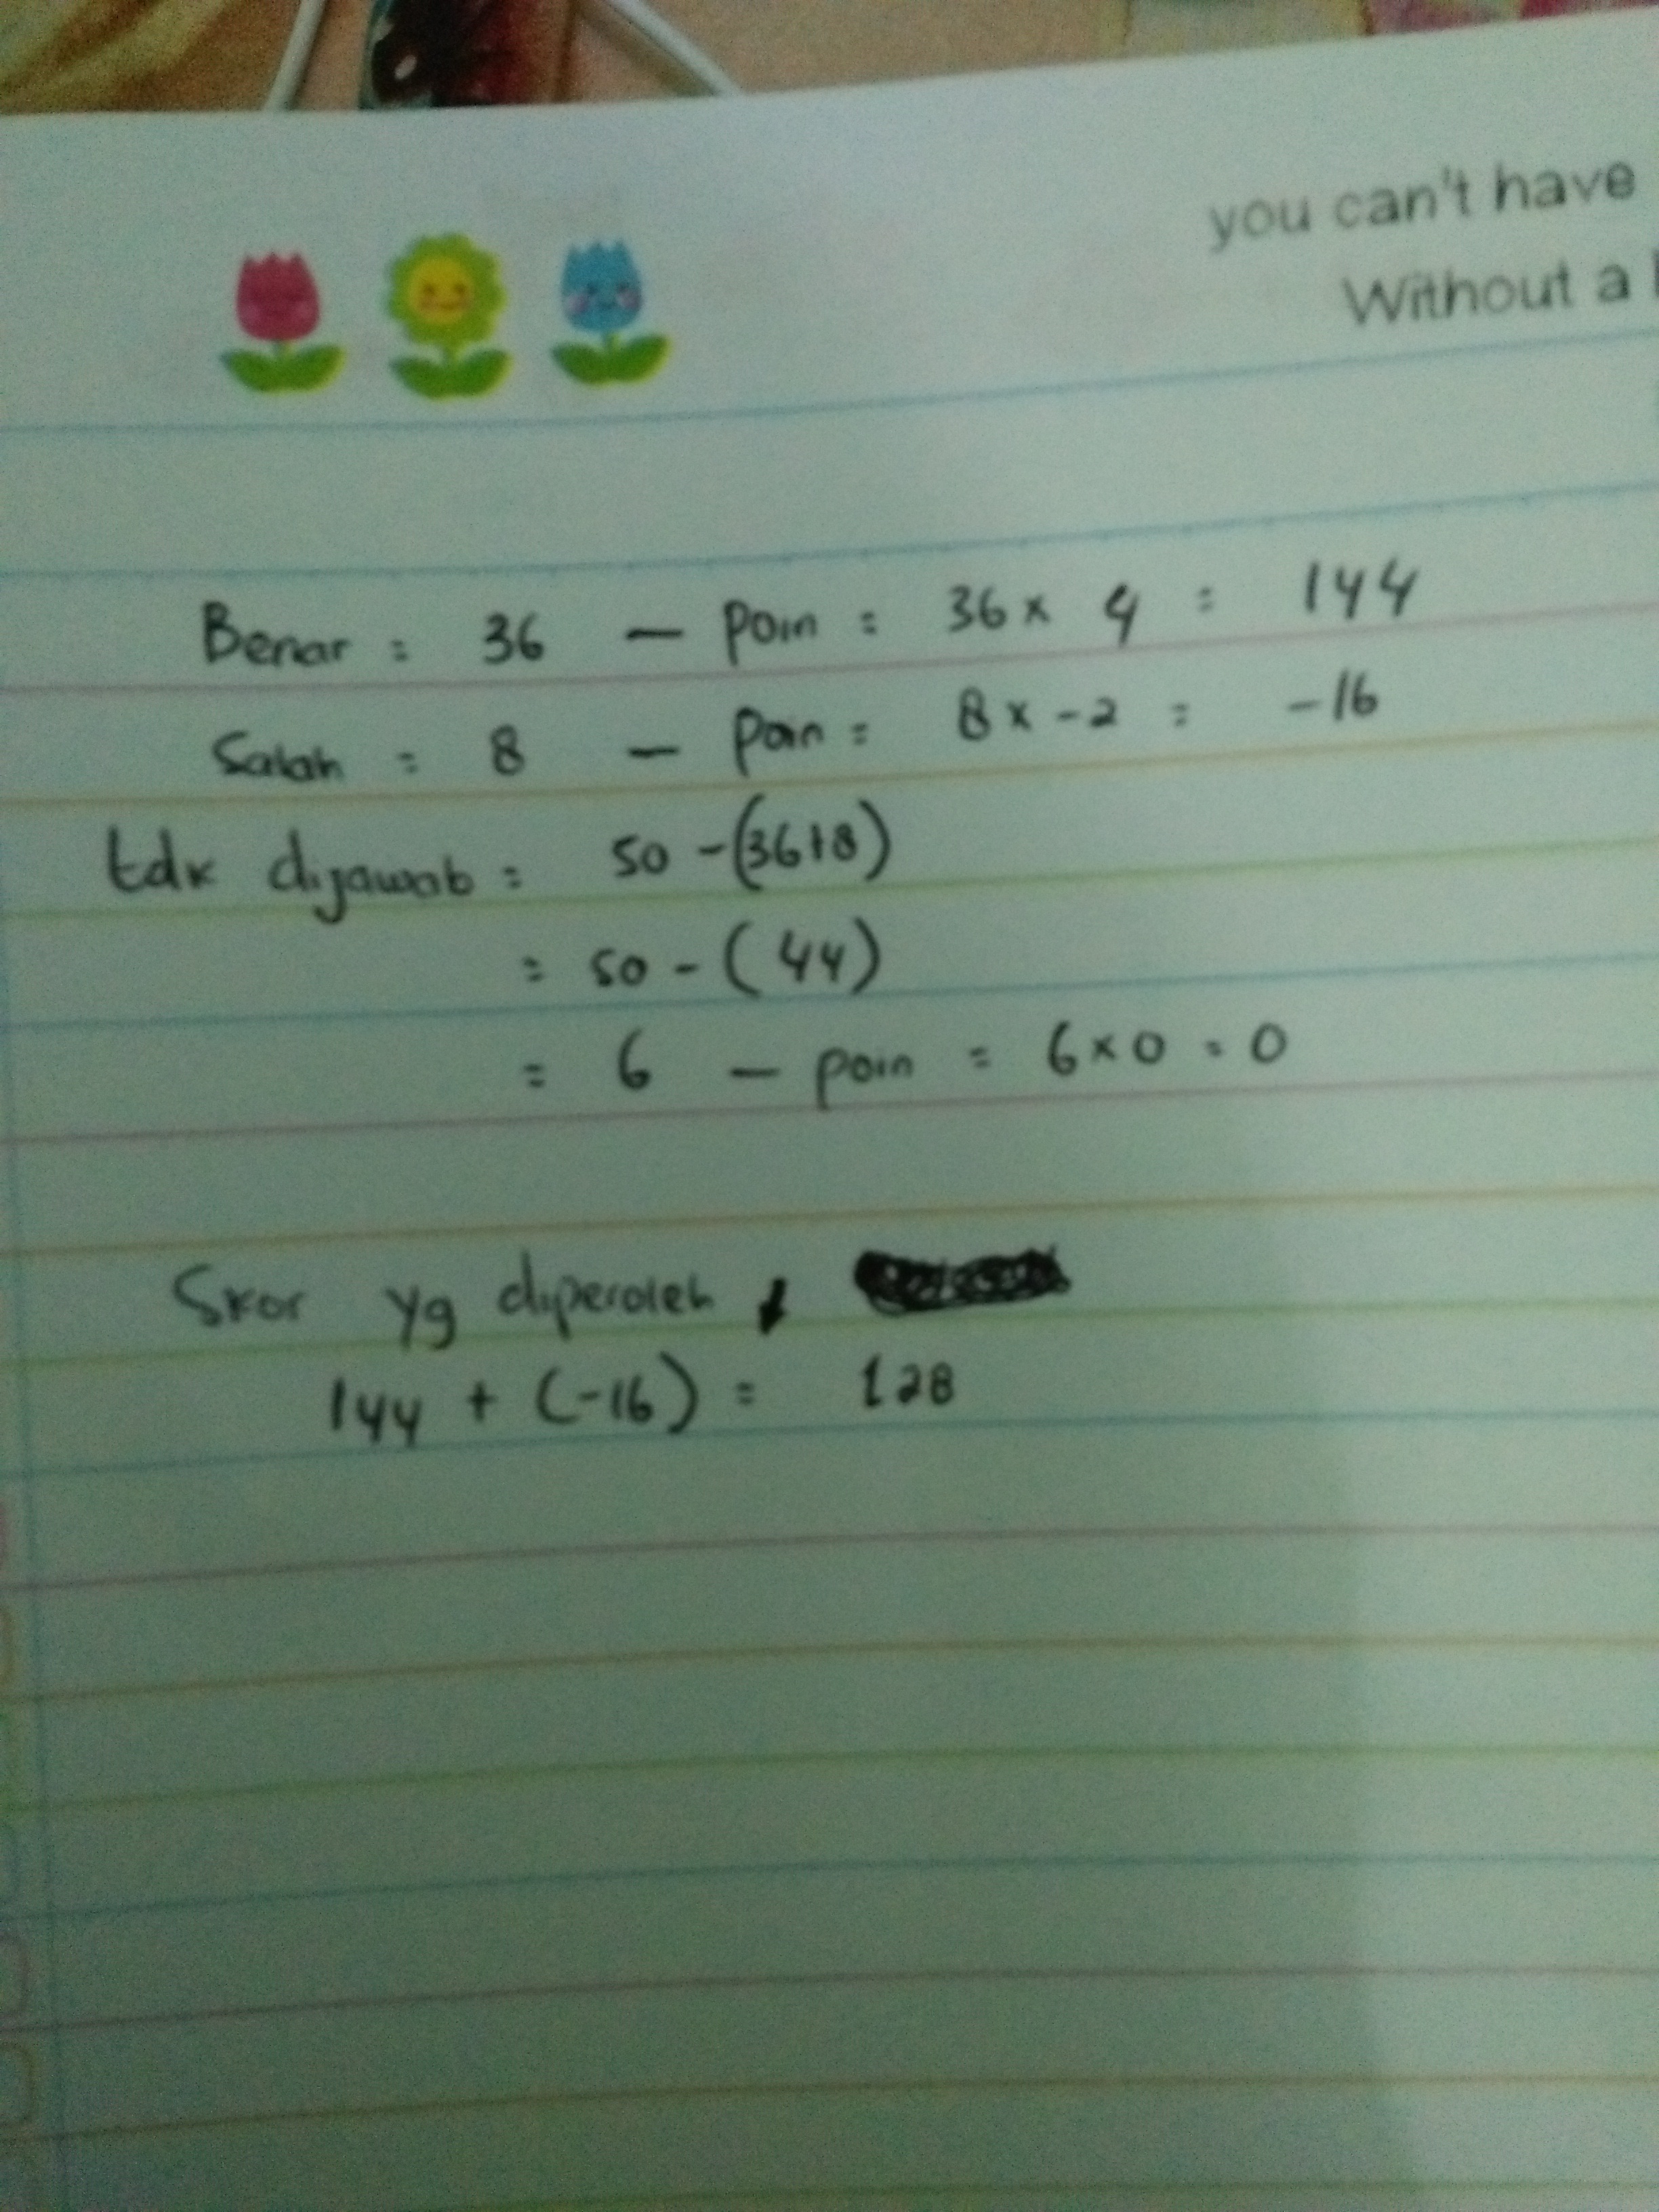 you can't have
Without a
Benar = 36 — poin = 36 x 4 = 144
Salah = 8 — poin = 8 x -2 = -16
tdk dijawab = 50 - (36+8)
= 50 - (44)
= 6 — poin = 6 x 0 = 0
Skor yg diperoleh ↓
144 + (-16) = 128